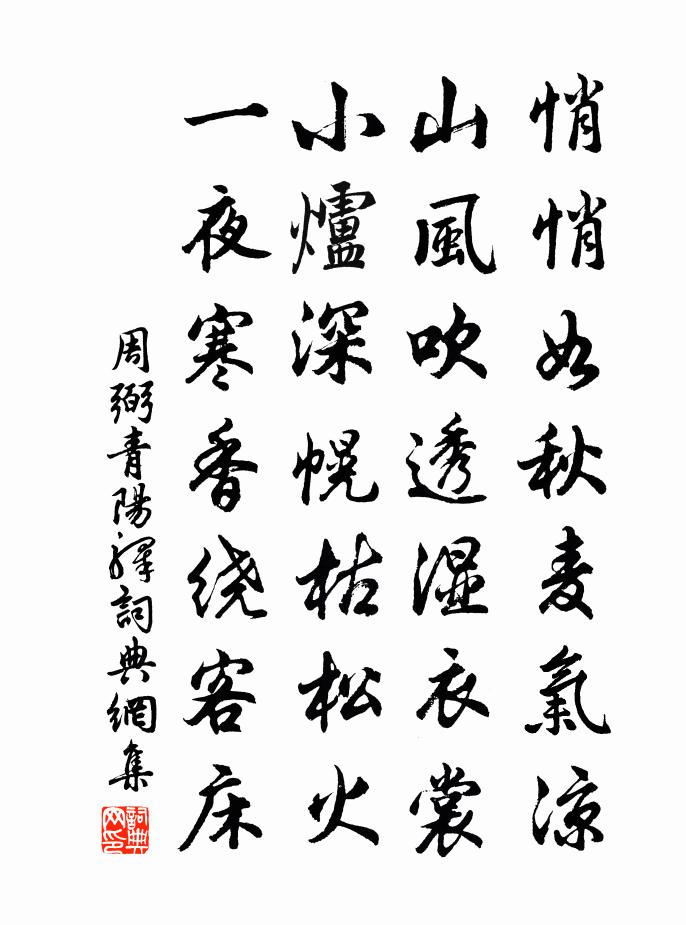 悄悄如秋麦氣涼
山風吹透湿衣裳
小爐深幌枯松火
一夜寒香绕客床
周弼青陽驛詞典網集
詞典网印